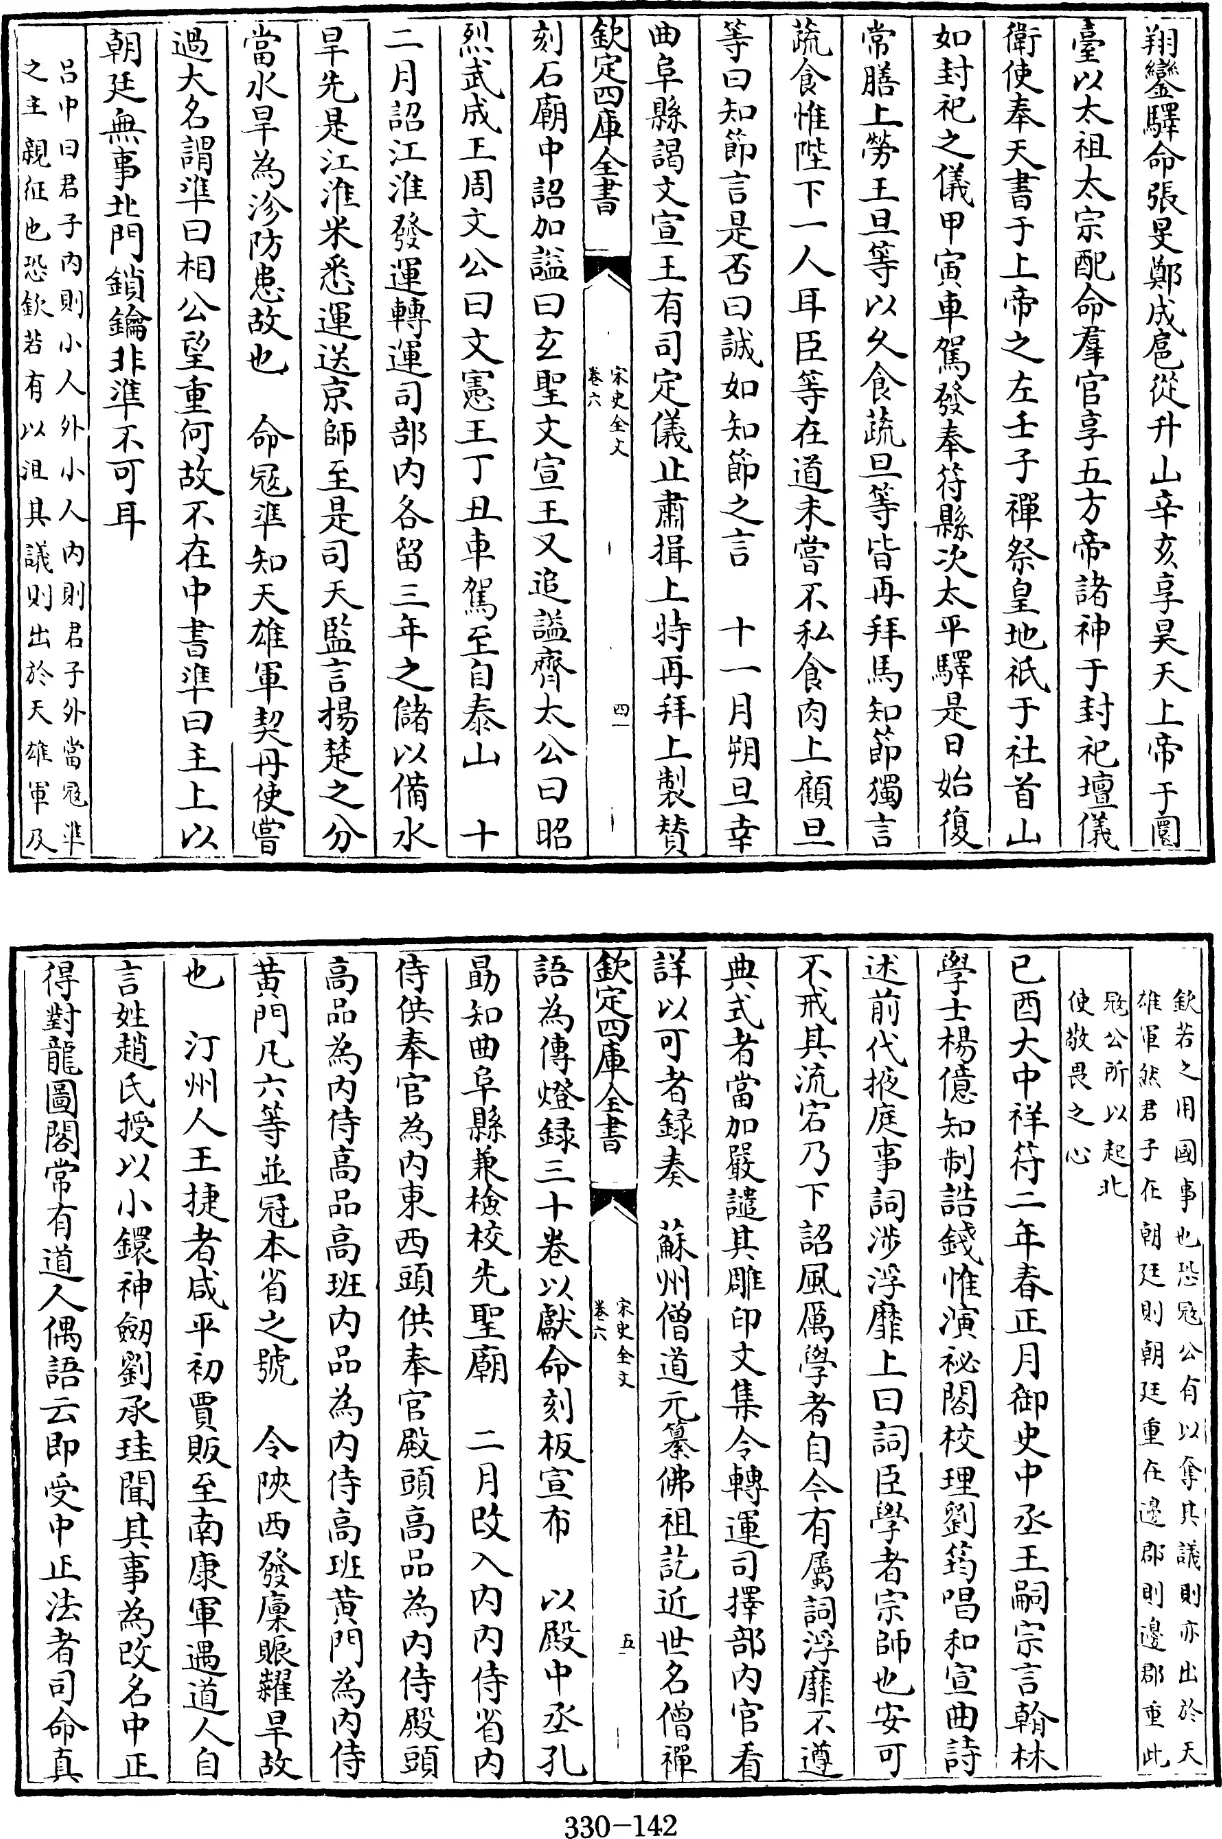 翔鑾驛命張旻鄭成扈從升山辛亥享昊天上帝于圜
臺以太祖太宗配命羣官享五方帝諸神于封祀壇儀
衛使奉天書于上帝之左壬子禪祭皇地祇于社首山
如封祀之儀甲寅車駕發奉符縣次太平驛是日始復
常膳上勞王旦等以久食蔬旦等皆再拜馬知節獨言
蔬食惟陛下一人耳臣等在道未嘗不私食肉上顧旦
等曰知節言是否曰誠如知節之言　十一月朔旦幸
曲阜縣謁文宣王有司定儀止肅揖上特再拜上製贊
欽定四庫全書
宋史全文
卷六
四
刻石廟中詔加謚曰玄聖文宣王又追謚齊太公曰昭
烈武成王周文公曰文憲王丁丑車駕至自泰山　十
二月詔江淮發運轉運司部內各留三年之儲以備水
旱先是江淮米悉運送京師至是司天監言揚楚之分
當水旱為沴防患故也　命冦準知天雄軍契丹使嘗
過大名謂準曰相公望重何故不在中書準曰主上以
朝廷無事北門鎖鑰非準不可耳
呂中曰君子內則小人外小人內則君子外當冦準
之主親征也恐欽若有以沮其議則出於天雄軍及
欽若之用國事也恐冦公有以奪其議則亦出於天
雄軍然君子在朝廷則朝廷重在邊郡則邊郡重此
冦公所以起北
使敬畏之心
已酉大中祥符二年春正月御史中丞王嗣宗言翰林
學士楊億知制誥錢惟演祕閣校理劉筠唱和宣曲詩
述前代掖庭事詞涉浮靡上曰詞臣學者宗師也安可
不戒其流宕乃下詔風厲學者自今有屬詞浮靡不遵
典式者當加嚴譴其雕印文集令轉運司擇部內官看
詳以可者録奏　蘇州僧道元纂佛祖訖近世名僧禪
欽定四庫全書
宋史全文
卷六
五
語為傳燈録三十卷以獻命刻板宣布　以殿中丞孔
勗知曲阜縣兼檢校先聖廟　二月改入內內侍省內
侍供奉官為內東西頭供奉官殿頭高品為內侍殿頭
高品為內侍高品高班內品為內侍高班黃門為內侍
黃門凡六等並冠本省之號　令陜西發廪賑糶旱故
也　汀州人王捷者咸平初賈販至南康軍遇道人自
言姓趙氏授以小鐶神劒劉承珪聞其事為改名中正
得對龍圖閣常有道人偶語云即受中正法者司命真
330-142